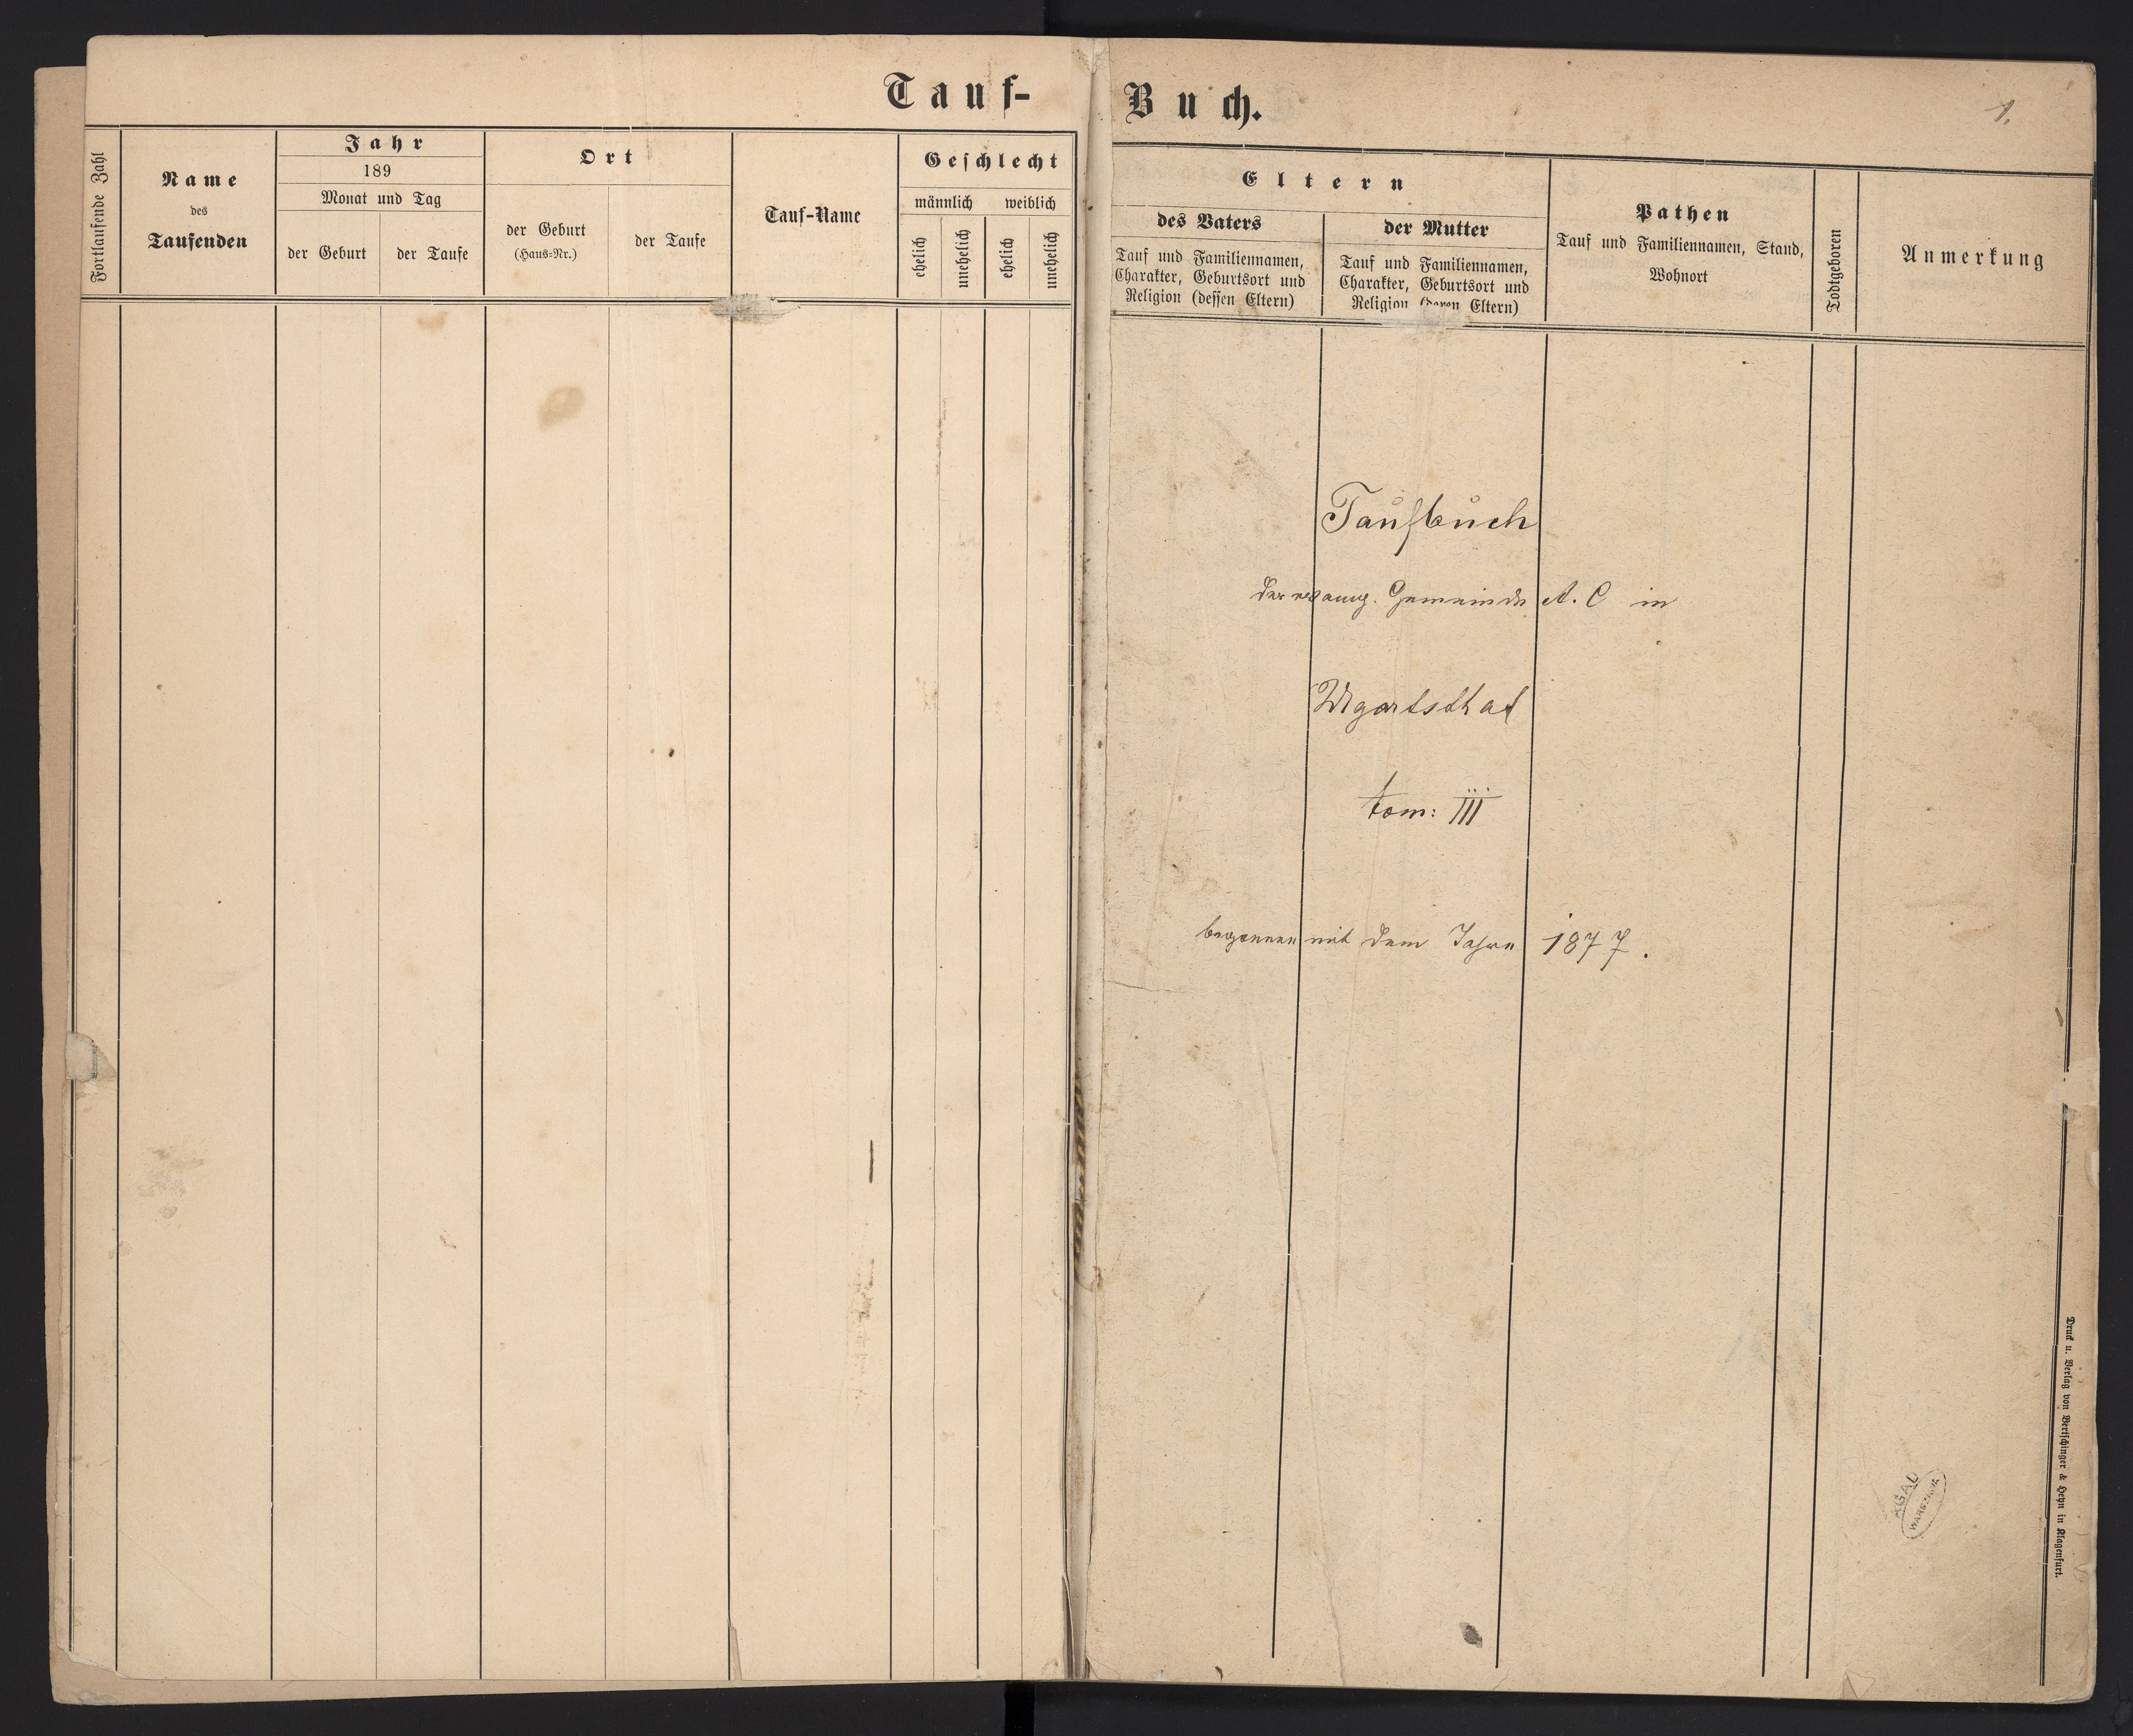 Tauf-
Buch.
1.
Fortlaufende Zahl
Name
des
Taufenden
Jahr
189
Monat und Tag
der Geburt
der Taufe
Ort
der Geburt
(Haus-Nr.)
der Taufe
Tauf-Name
Geschlecht
männlich
weiblich
ehelich
unehelich
ehelich
unehelich
Eltern
des Vaters
Tauf und Familiennamen,
Charakter, Geburtsort und
Religion (dessen Eltern)
der Mutter
Tauf und Familiennamen,
Charakter, Geburtsort und
Religion (deren Eltern)
Pathen
Tauf und Familiennamen, Stand,
Wohnort
Todtgeboren
Anmerkung
Taufbuch
der evang. Gemeinde A. C in
Ugartsthal
tom: III
begonnen mit dem Jahre 1877.
AGAD
WARSZAWA
Druck u. Verlag von Bertschinger & Heyn in Klagenfurt.